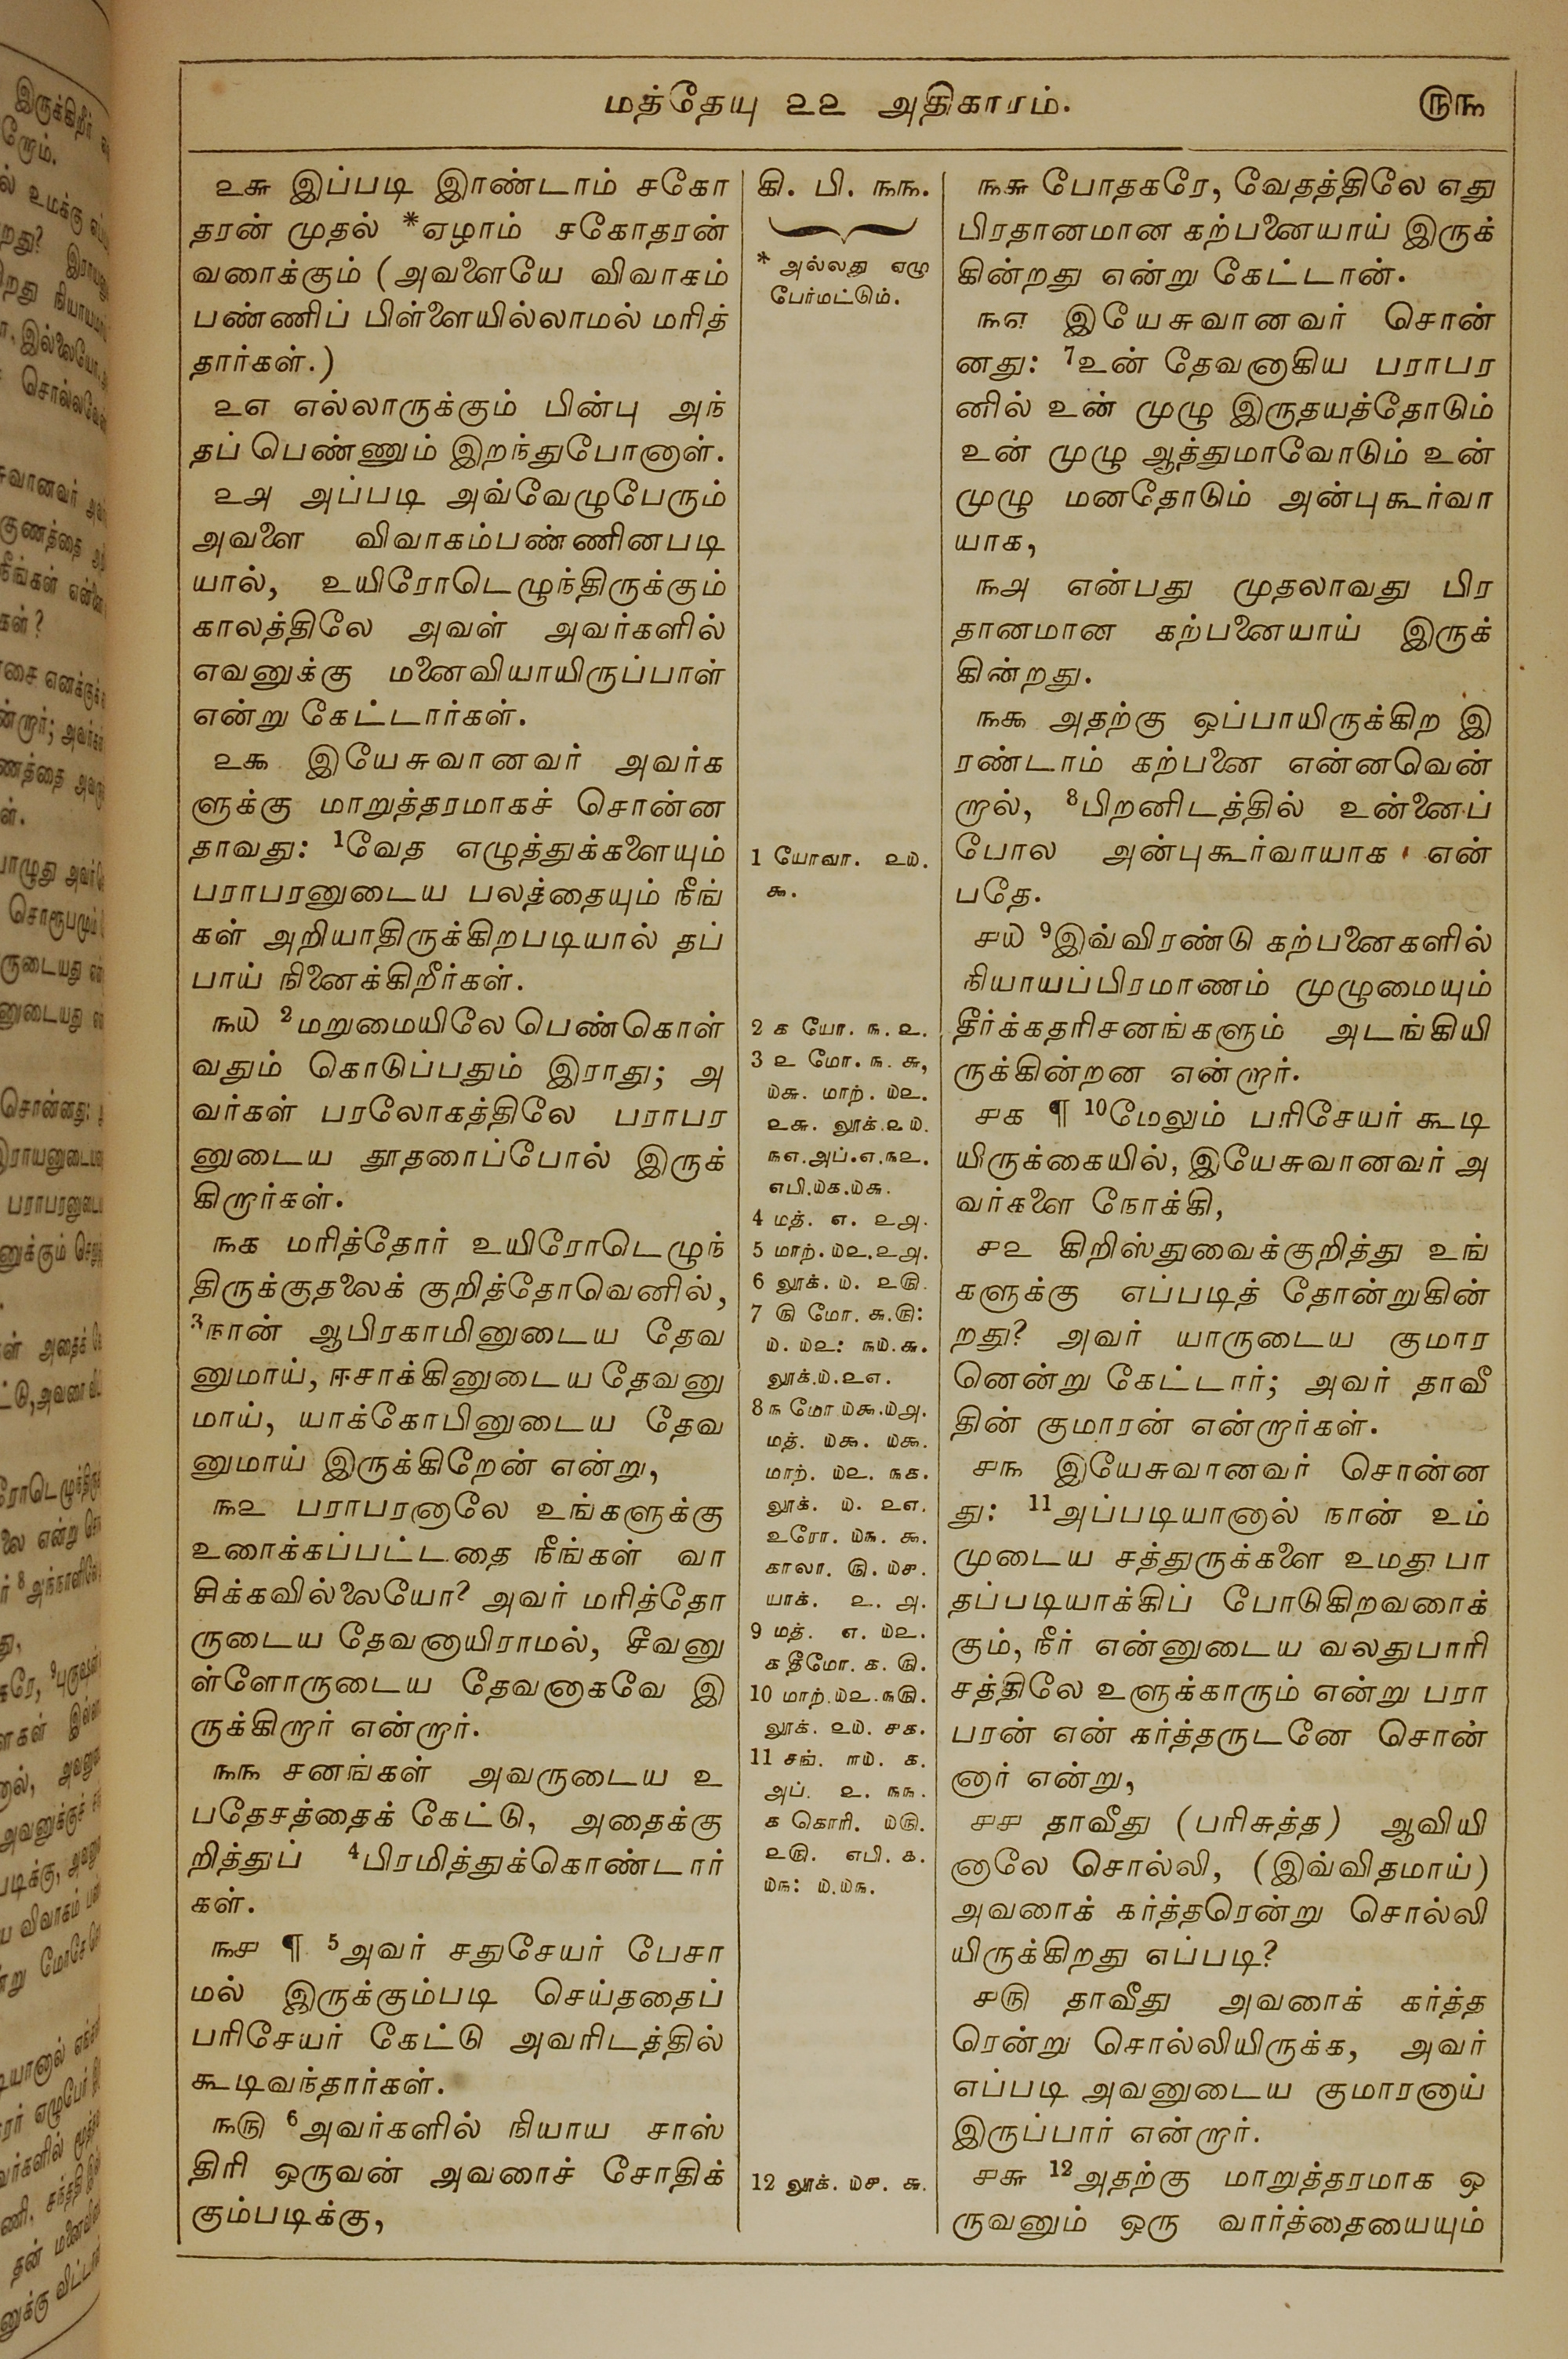 மத்தேயு ௨௨ அதிகாரம்.
௫௩
௨௬ இப்படி இரண்டாம் சகோ
தரன் முதல் *ஏழாம் சகோதரன்
வரைக்கும் (அவளையே விவாகம்
பண்ணிப் பிள்ளையில்லாமல் மரித்
தார்கள்.)
௨௭ எல்லாருக்கும் பின்பு அந்
தப் பெண்ணும் இறந்துபோனாள்.
௨௮ அப்படி அவ்வேழுபேரும்
அவளை விவாகம்பண்ணினபடி
யால், உயிரோடெழுந்திருக்கும்
காலத்திலே அவள் அவர்களில்
எவனுக்கு மனைவியாயிருப்பாள்
என்று கேட்டார்கள்.
௨௯ இயேசுவானவர் அவர்க
ளுக்கு மாறுத்தரமாகச் சொன்ன
தாவது: 1வேத எழுத்துக்களையும்
பராபரனுடைய பலத்தையும் நீங்
கள் அறியாதிருக்கிறபடியால் தப்
பாய் நினைக்கிறீர்கள்.
௩௰ 2மறுமையிலே பெண்கொள்
வதும் கொடுப்பதும் இராது; அ
வர்கள் பரலோகத்திலே பராபர
னுடைய தூதரைப்போல் இருக்
கிறார்கள்.
௩௧ மரித்தோர் உயிரோடெழுந்
திருக்குதலைக் குறித்தோவெனில்,
3நான் ஆபிரகாமினுடைய தேவ
னுமாய், ஈசாக்கினுடைய தேவனு
மாய், யாக்கோபினுடைய தேவ
னுமாய் இருக்கிறேன் என்று,
௩௨ பராபரனாலே உங்களுக்கு
உரைக்கப்பட்டதை நீங்கள் வா
சிக்கவில்லையோ? அவர் மரித்தோ
ருடைய தேவனாயிராமல், சீவனு
ள்ளோருடைய தேவனாகவே இ
ருக்கிறார் என்றார்.
௩௩ சனங்கள் அவருடைய உ
பதேசத்தைக் கேட்டு, அதைக்கு
றித்துப் 4பிரமித்துக்கொண்டார்
கள்.
௩௪ ¶ 5அவர் சதுசேயர் பேசா
மல் இருக்கும்படி செய்ததைப்
பரிசேயர் கேட்டு அவரிடத்தில்
கூடிவந்தார்கள்.
௩௫ 6அவர்களில் நியாய சாஸ்
திரி ஒருவன் அவரைச் சோதிக்
கும்படிக்கு,
கி. பி. ௩௩.
* அல்லது ஏழு
பேர்மட்டும்.
1 யோவா. ௨௰.
௯.
2 ௧ யோ. ௩. ௨.
3 ௨ மோ. ௩. ௬,
௰௬. மாற். ௰௨.
௨௬. லூக். ௨௰.
௩௭. அப். ௭. ௩௨.
எபி. ௰௧. ௰௬.
4 மத். ௭. ௨௮.
5 மாற். ௰௨. ௨௮.
6 லூக். ௰. ௨௫.
7 ௫ மோ. ௬. ௫:
௰. ௰௨: ௩௰. ௬.
லூக். ௰. ௨௭.
8 ௩ மோ ௰௯. ௰௮.
மத். ௰௯. ௰௯.
மாற். ௰௨. ௩௧.
லூக். ௰. ௨௭.
உரோ. ௰௩. ௯.
காலா. ௫. ௰௪.
யாக். ௨. ௮.
9 மத். ௭. ௰௨.
௧ தீமோ. ௧. ௫.
10 மாற். ௰௨. ௩௫.
லூக். ௨௰. ௪௧.
11 சங். ௱௰. ௧.
அப். ௨. ௩௩.
௧ கொரி. ௰௫.
௨௫. எபி. ௧.
௰௩: ௰. ௰௩.
12 லூக். ௰௪. ௬.
௩௬ போதகரே, வேதத்திலே எது
பிரதானமான கற்பனையாய் இருக்
கின்றது என்று கேட்டான்.
௩௭ இயேசுவானவர் சொன்
னது: 7உன் தேவனாகிய பராபர
னில் உன் முழு இருதயத்தோடும்
உன் முழு ஆத்துமாவோடும் உன்
முழு மனதோடும் அன்புகூர்வா
யாக,
௩௮ என்பது முதலாவது பிர
தானமான கற்பனையாய் இருக்
கின்றது.
௩௯ அதற்கு ஒப்பாயிருக்கிற இ
ரண்டாம் கற்பனை என்னவென்
றால், 8பிறனிடத்தில் உன்னைப்
போல அன்புகூர்வாயாக என்
பதே.
௪௰ 9இவ்விரண்டு கற்பனைகளில்
நியாயப்பிரமாணம் முழுமையும்
தீர்க்கதரிசனங்களும் அடங்கியி
ருக்கின்றன என்றார்.
௪௧ ¶ 10மேலும் பரிசேயர் கூடி
யிருக்கையில், இயேசுவானவர் அ
வர்களை நோக்கி,
௪௨ கிறிஸ்துவைக்குறித்து உங்
களுக்கு எப்படித் தோன்றுகின்
றது? அவர் யாருடைய குமார
னென்று கேட்டார்; அவர் தாவீ
தின் குமாரன் என்றார்கள்.
௪௩ இயேசுவானவர் சொன்ன
து: 11அப்படியானால் நான் உம்
முடைய சத்துருக்களை உமது பா
தப்படியாக்கிப் போடுகிறவரைக்
கும், நீர் என்னுடைய வலதுபாரி
சத்திலே உளுக்காரும் என்று பரா
பரன் என் கர்த்தருடனே சொன்
னார் என்று,
௪௪ தாவீது (பரிசுத்த) ஆவியி
னாலே சொல்லி, (இவ்விதமாய்)
அவரைக் கர்த்தரென்று சொல்லி
யிருக்கிறது எப்படி?
௪௫ தாவீது அவரைக் கர்த்த
ரென்று சொல்லியிருக்க, அவர்
எப்படி அவனுடைய குமாரனாய்
இருப்பார் என்றார்.
௪௬ 12அதற்கு மாறுத்தரமாக ஒ
ருவனும் ஒரு வார்த்தையையும்